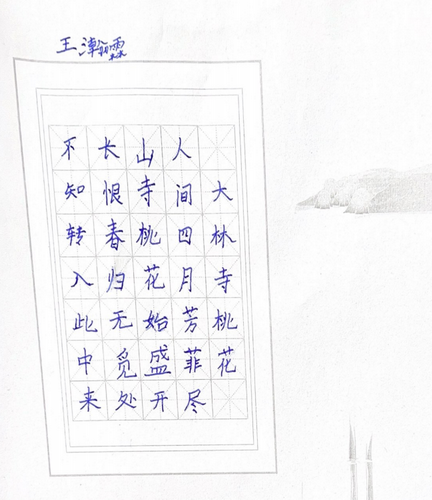 王瀚霖
大林寺桃花
人间四月芳菲尽
山寺桃花始盛开
长恨春归无觅处
不知转入此中来